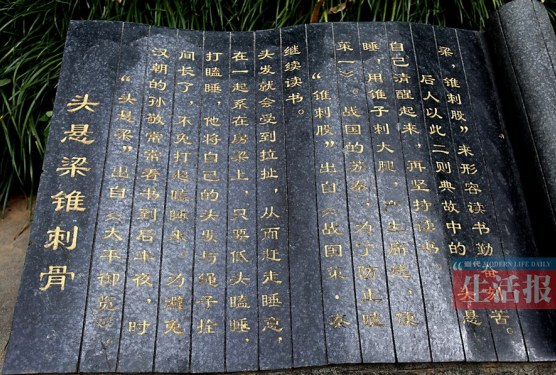 头悬梁锥刺骨
“头悬梁”出自《太平御览》，
汉朝的孙敬常常看书到后半夜，时
间长了，不免打起瞌睡来。为避免
打瞌睡，他将自己的头发与绳子拴
在一起系在房梁上，只要低头瞌睡，
头发就会受到拉扯，从而赶走睡意，
继续读书。
“锥刺股”出自《战国策，秦
策一》。战国的苏秦，为了防止瞌
睡，用锥子刺大腿，产生痛感，使
自己清醒起来，再坚持读书。
后人以此二则典故中的“头悬
梁，锥刺股”来形容读书勤奋刻苦。
当代 MODERN LIFE DAILY
生活报